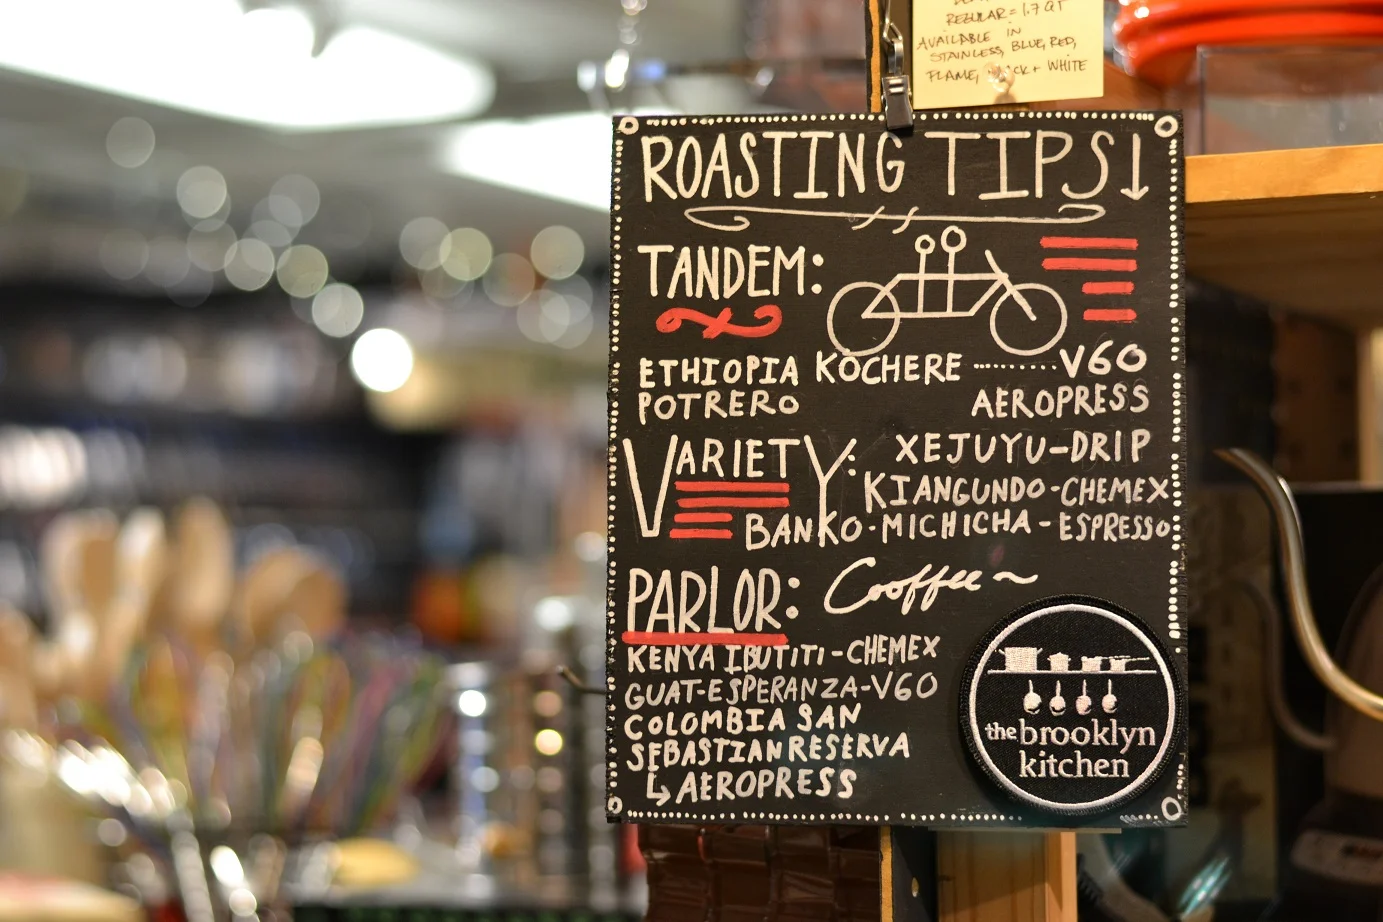 REGULAR = 1.7 QT
AVAILABLE IN
STAINLESS, BLUE, RED,
FLAME, + WHITE
ROASTING TIPS↓
TANDEM:
ETHIOPIA KOCHERE ......... V60
POTRERO AEROPRESS
VARIETY: XEJUYU-DRIP
KIANGUNDO-CHEMEX
BANKO-MICHICHA-ESPRESSO
PARLOR: Cooffee~
KENYA IBUTITI-CHEMEX
GUAT-ESPERANZA-V60
COLOMBIA SAN
SEBASTIAN RESERVA
↳ AEROPRESS
the brooklyn
kitchen